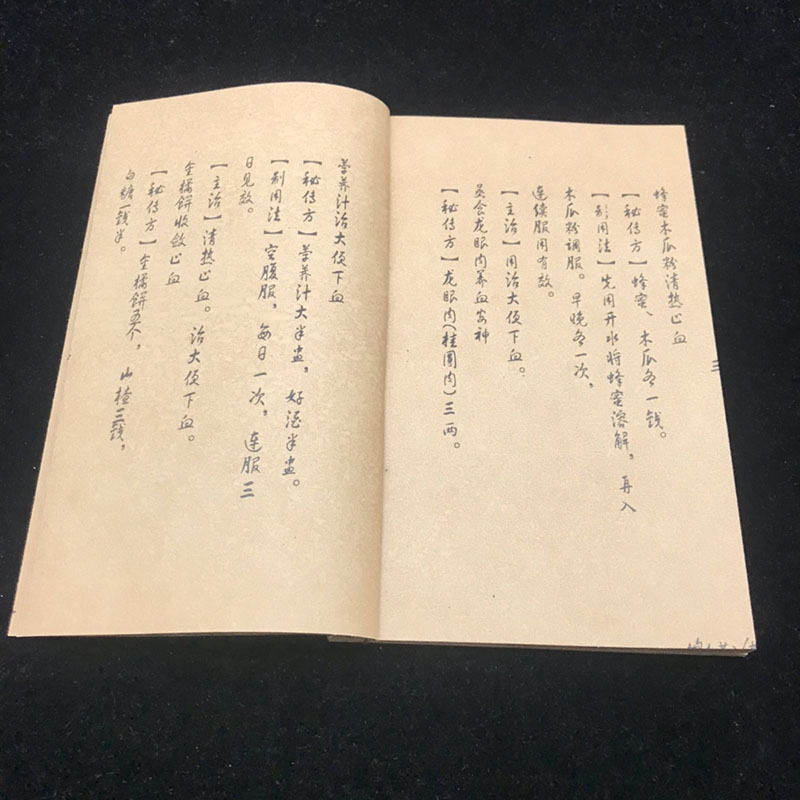 蜂蜜木瓜粉清热止血
三
【秘传方】蜂蜜、木瓜各一钱。
【制用法】先用开水将蜂蜜溶解，再入
木瓜粉调服。早晚各一次，
连续服用有效。
【主治】用治大便下血。
蒸食龙眼肉养血安神
【秘传方】龙眼肉(桂圆肉)三两。
荸荠汁治大便下血
【秘传方】荸荠汁大半盅，好酒半盅。
【制用法】空腹服，每日一次，连服三
日见效。
【主治】清热止血。治大便下血。
金橘饼收敛止血
【秘传方】金橘饼五个，山楂三钱，
白糖一钱半。